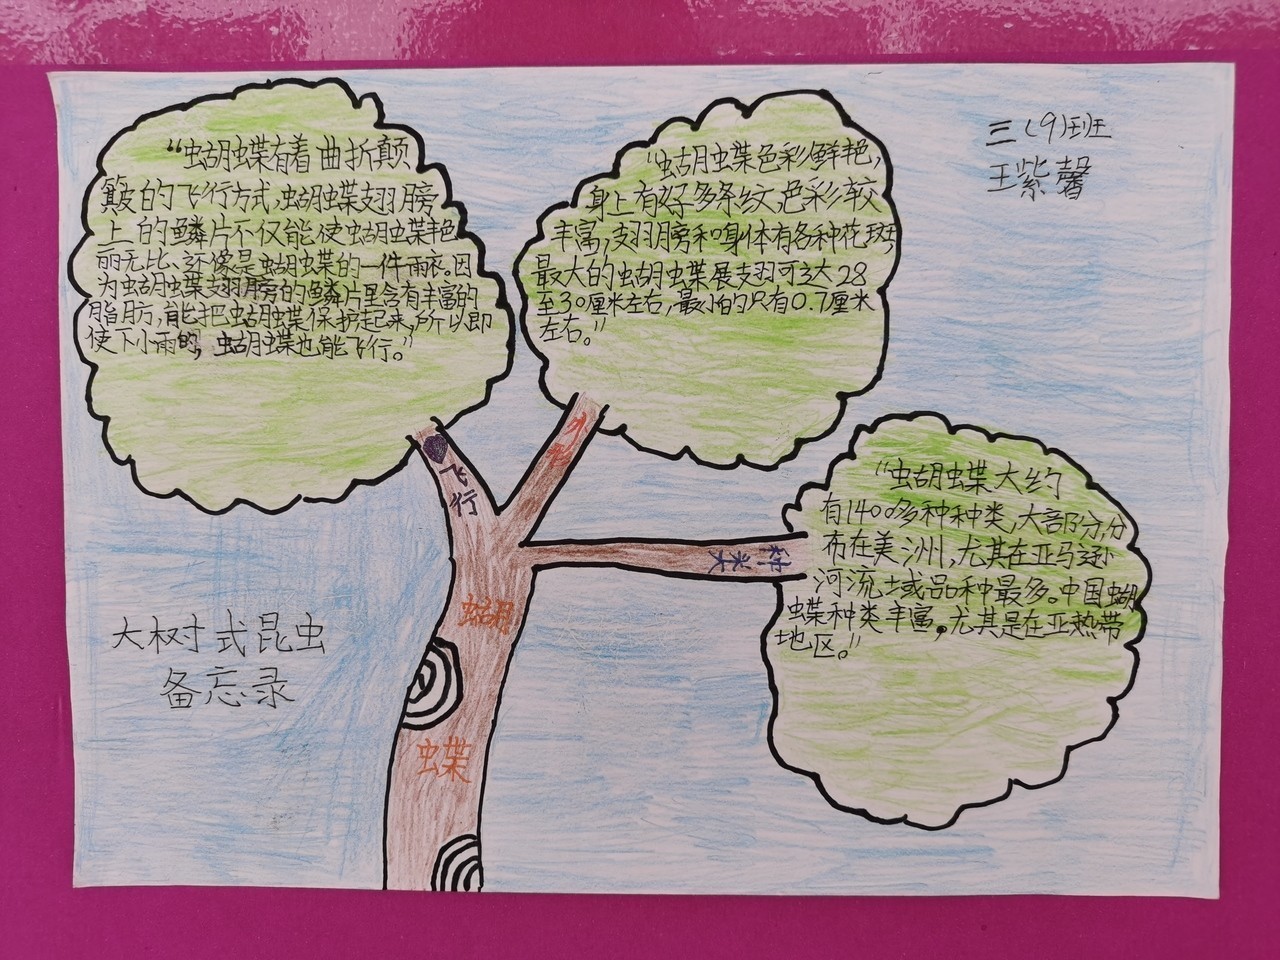 三(9)班
王紫馨
“蝴蝶有着曲折颠
簸的飞行方式,蝴蝶翅膀
上的鳞片不仅能使蝴蝶艳
丽无比、还像是蝴蝶的一件雨衣。因
为蝴蝶翅膀的鳞片里含有丰富的
脂肪,能把蝴蝶保护起来,所以即
使下小雨时,蝴蝶也能飞行。”
“蝴蝶色彩鲜艳,
身上有好多条纹,色彩较
丰富,翅膀和身体有各种花斑
最大的蝴蝶展翅可达28
至30厘米左右,最小的只有0.7厘米
左右。”
“蝴蝶大约
有1400多种种类,大部分分
布在美洲,尤其在亚马逊
河流域品种最多。中国蝴
蝶种类丰富。尤其是在亚热带
地区。”
飞行
种类
蝴
蝶
大树式昆虫
备忘录